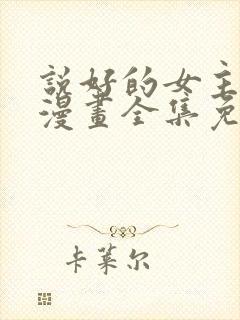 說好的女主
漫畫全集免
卡萊尔